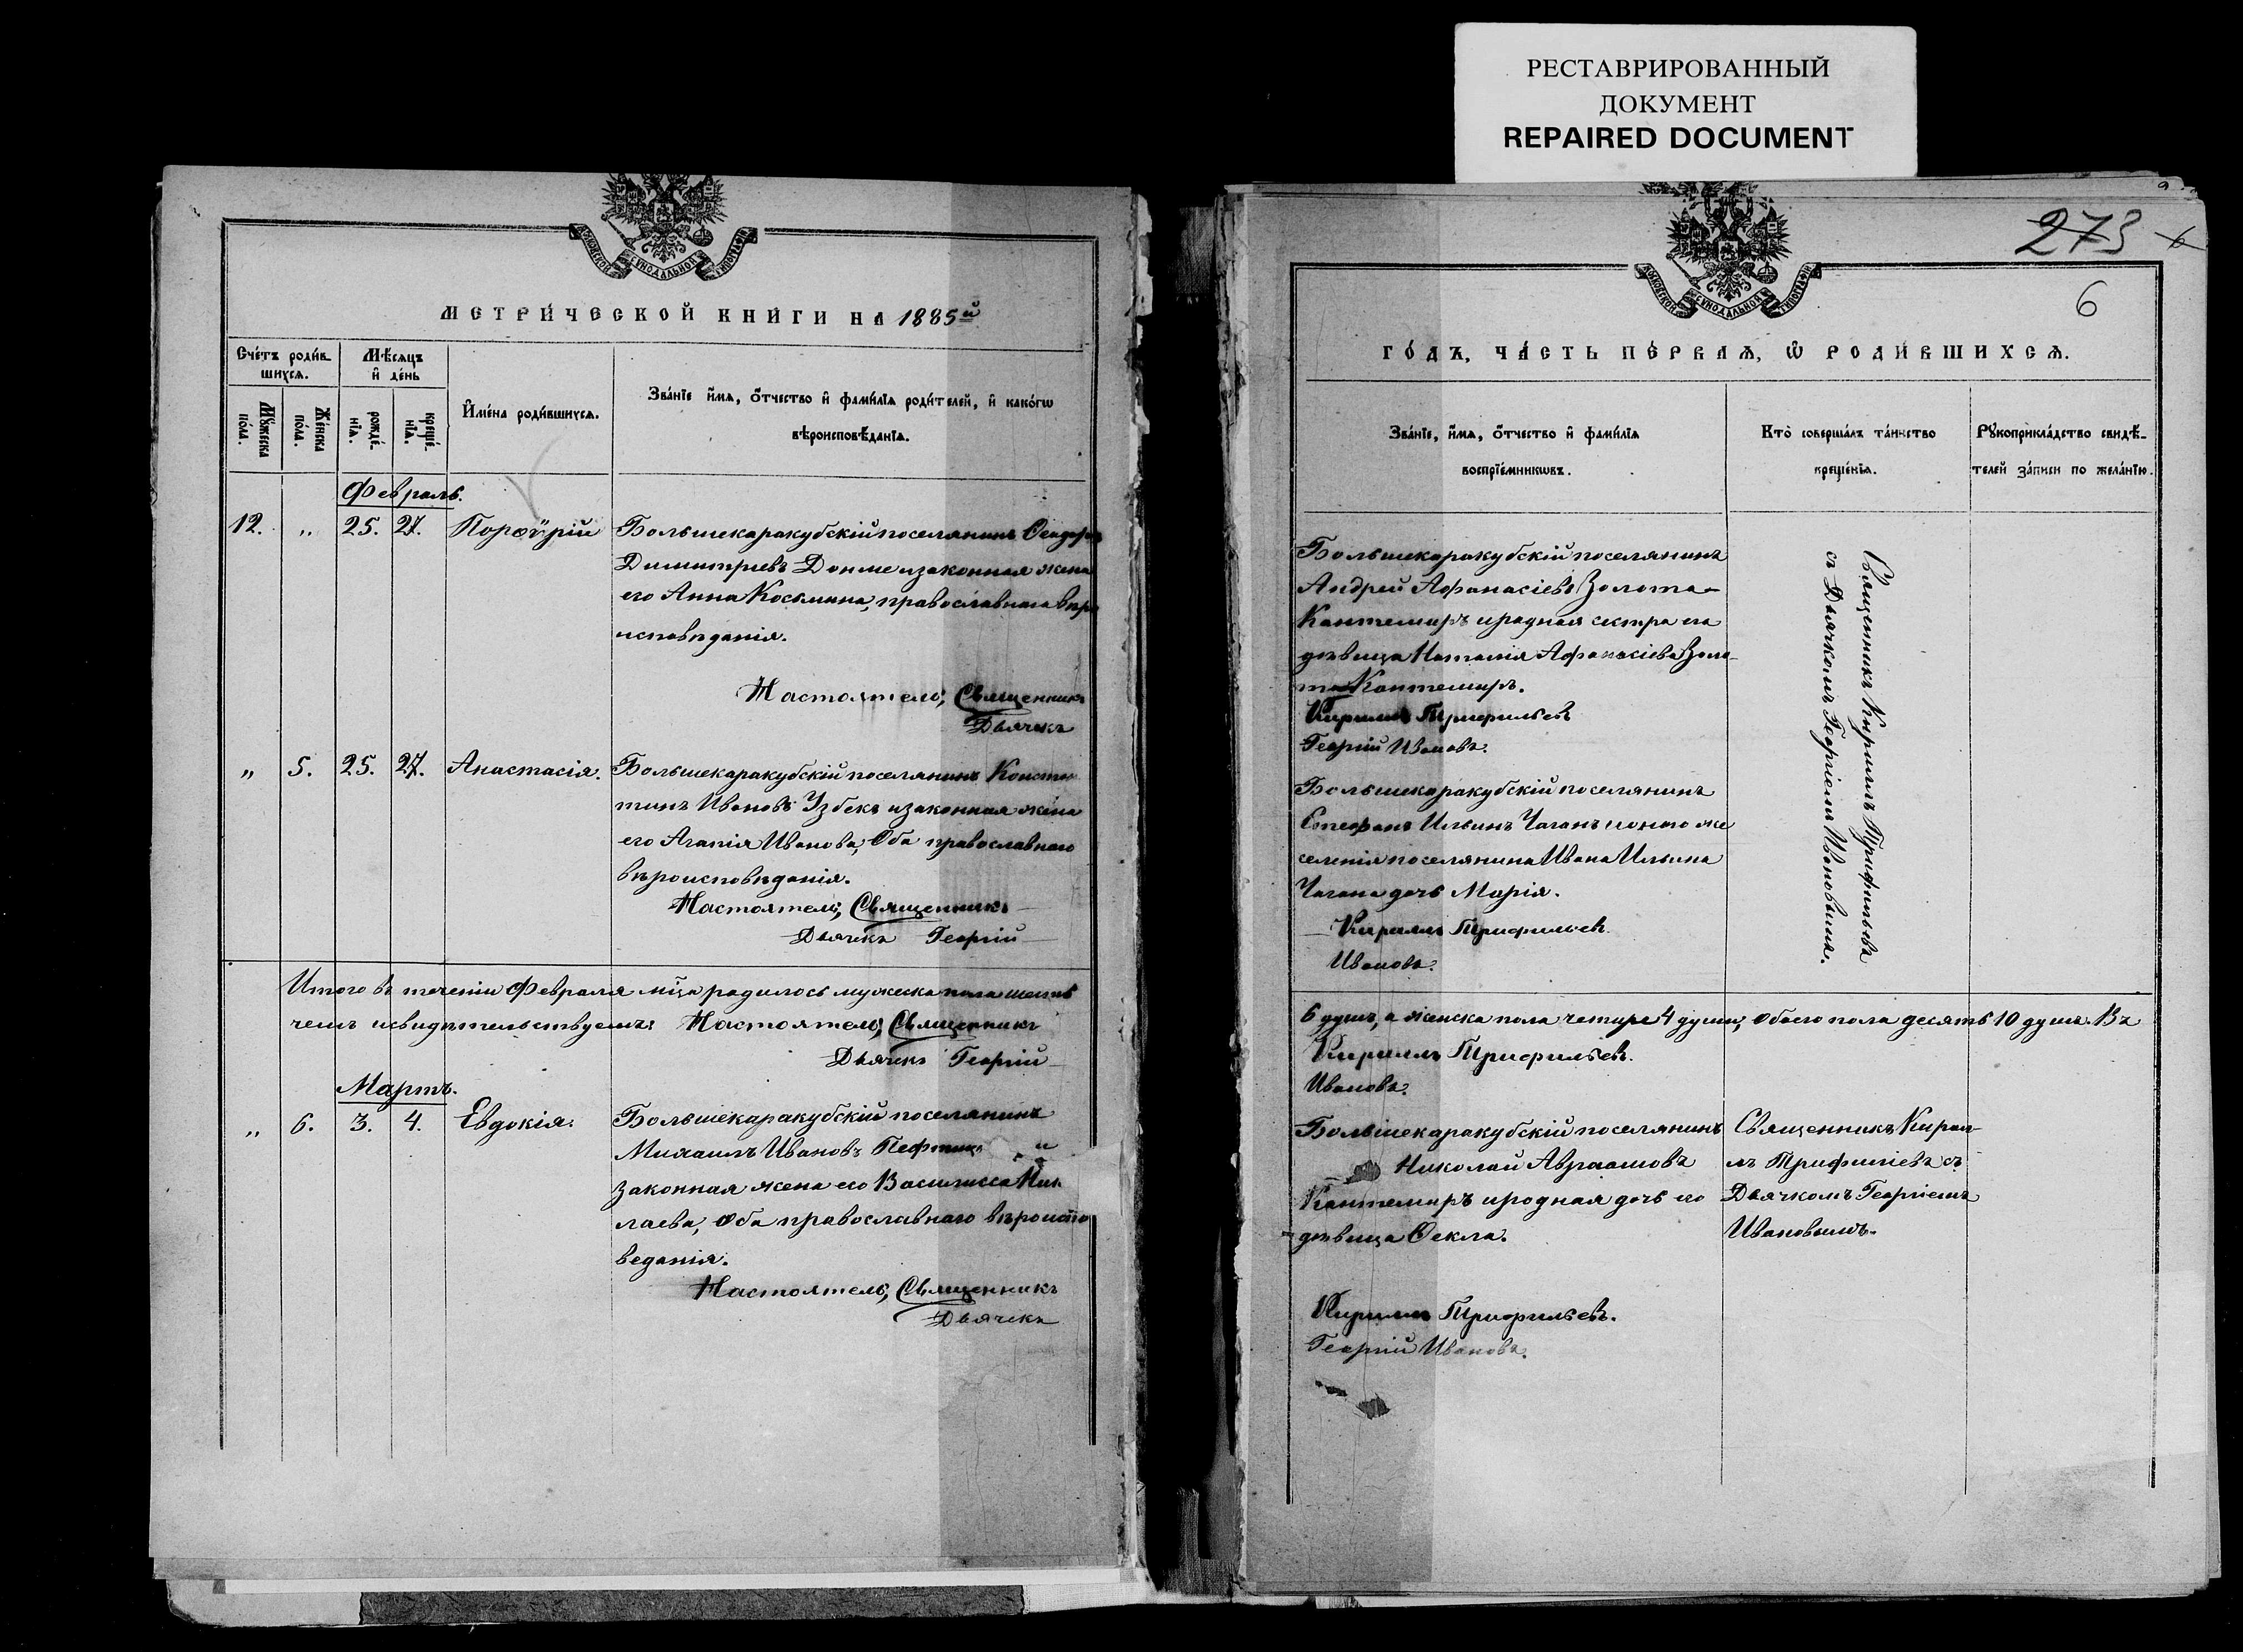 РЕСТАВРИРОВАННЫЙ
ДОКУМЕНТ
REPAIRED DOCUMENT
МОСКОВСКОЙ СѴНОДАЛЬНОЙ ТИПОГРАФІИ
МЕТРИ́ЧЕСКОЙ КНИ́ГИ НА 1885й
Сче́тъ роди́в-
шихся.
Мѣ́сяцъ
и҆ де́нь
Мꙋ́жеска
по́ла.
Же́нска
по́ла.
рожде́-
нїѧ.
креще́-
нїѧ.
И҆мена̀ роди́вшихсѧ.
Зва́нїе и҆́мѧ, ѻ҆́тчество и҆ фами́лїѧ роди́телей, и҆ како́гѡ
вѣроисповѣ́данїѧ.
Февраль.
12. „ 25. 27. Порфѵрій
Большекаракубскій поселянинъ Ѳеодоръ
Димитріевъ Донме и законная жена
его Анна Космина, православнаго вѣро
исповѣданія.
Настоятель, Священникъ
Дьячекъ
„ 5. 25. 27. Анастасія.
Большекаракубскій поселянинъ Констан
тинъ Ивановъ Узбекъ и законная жена
его Агапія Иванова, Оба православнаго
вѣроисповѣданія.
Настоятель, Священникъ
Дьячекъ Георгій
Итого въ теченіи Февраля мца родилось мужеска пола шесть
чемъ и свидѣтельствуемъ: Настоятель, Священникъ
Дьячекъ Георгій
Мартъ.
„ 6. 3. 4. Евдокія.
Большекаракубскій поселянинъ
Михаилъ Ивановъ и
законная жена его Василисса Нико
лаева, Оба православнаго вѣроиспо
веданія.
Настоятель, Священникъ
Дьячекъ
273 6
6
МОСКОВСКОЙ СѴНОДАЛЬНОЙ ТИПОГРАФІИ
ГО́ДЪ, ЧА́СТЬ ПЕ́РВАѦ, Ѡ҆ РОДИ́ВШИХСѦ.
Зва́нїе, и҆́мѧ, ѻ҆́тчество и҆ фами́лїѧ
воспрїе́мникѡвъ.
Кто̀ соверша́лъ та́инство
креще́нїѧ.
Рꙋкоприкла́дство свидѣ́-
телей за́писи по жела́нїю.
Большекаракубскій поселянинъ
Андрей Афанасіевъ Золота-
Кантемиръ и родная сестра его
дѣвица Наталія Афанасіева Золо-
та Кантемиръ.
Кириллъ Трифильевъ
Георгій Ивановъ.
Большекаракубскій поселянинъ
Стефанъ Ильинъ Чаганъ и оного же
селенія поселянина Ивана Ильина
Чагана дочь Марія.
Кириллъ Трифильевъ
Ивановъ.
Священникъ Кириллъ Трифильевъ
съ Дьячкомъ Георгіемъ Ивановымъ.
6 душъ, а женска пола четыре 4 души, обоего пола десять 10 душъ. Въ
Кириллъ Трифильевъ.
Ивановъ.
Большекаракубскій поселянинъ
Николай Авраамовъ
Кантемиръ и родная дочь его
дѣвица Ѳекла.
Священникъ Кирил-
лъ Трифиліевъ съ
Дьячкомъ Георгіемъ
Ивановымъ.
Кириллъ Трифильевъ.
Георгій Ивановъ.